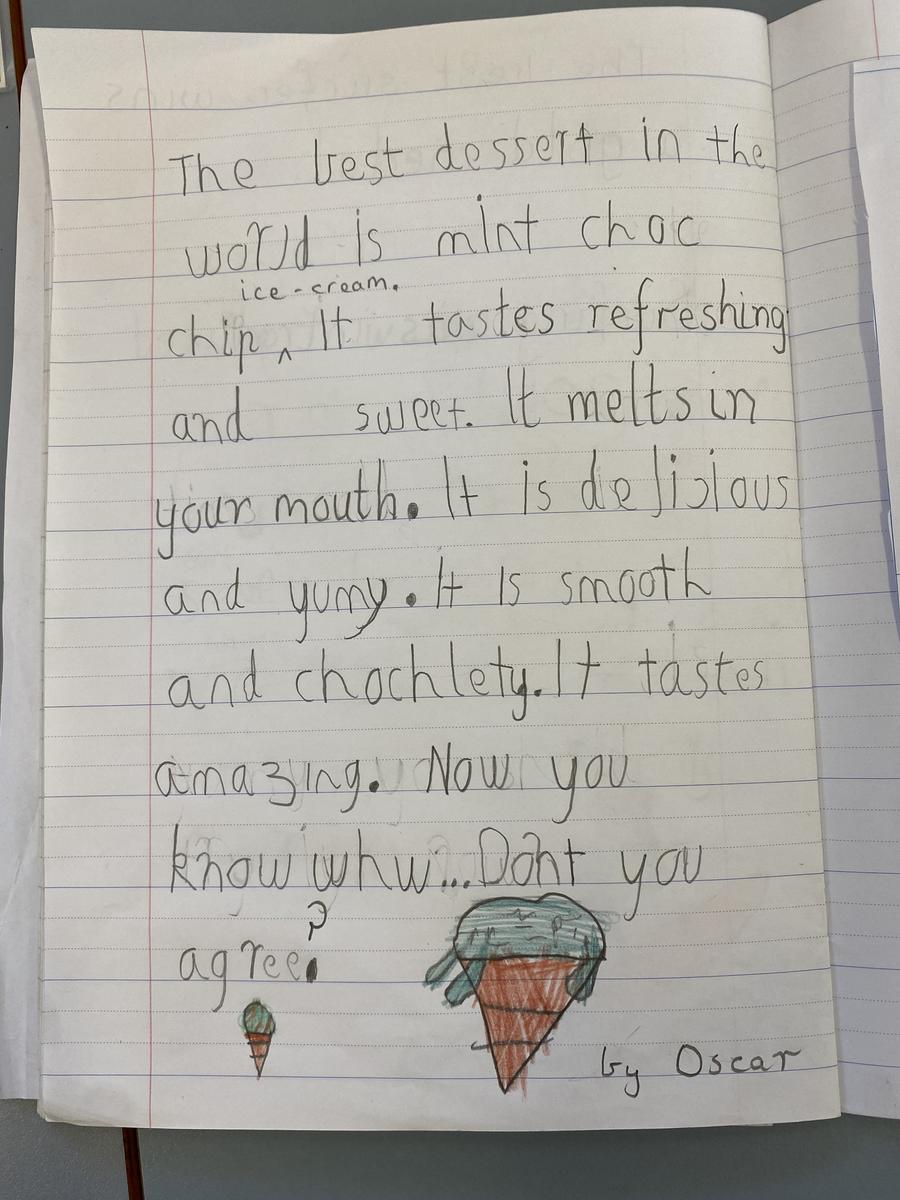 The best dessert in the
world is mint choc
ice-cream.
chip ^ It tastes refreshing
and sweet. It melts in
your mouth. It is delicious
and yumy. It is smooth
and chochlety. It tastes
amazing. Now you
know whw... Dont you
agree?
by Oscar